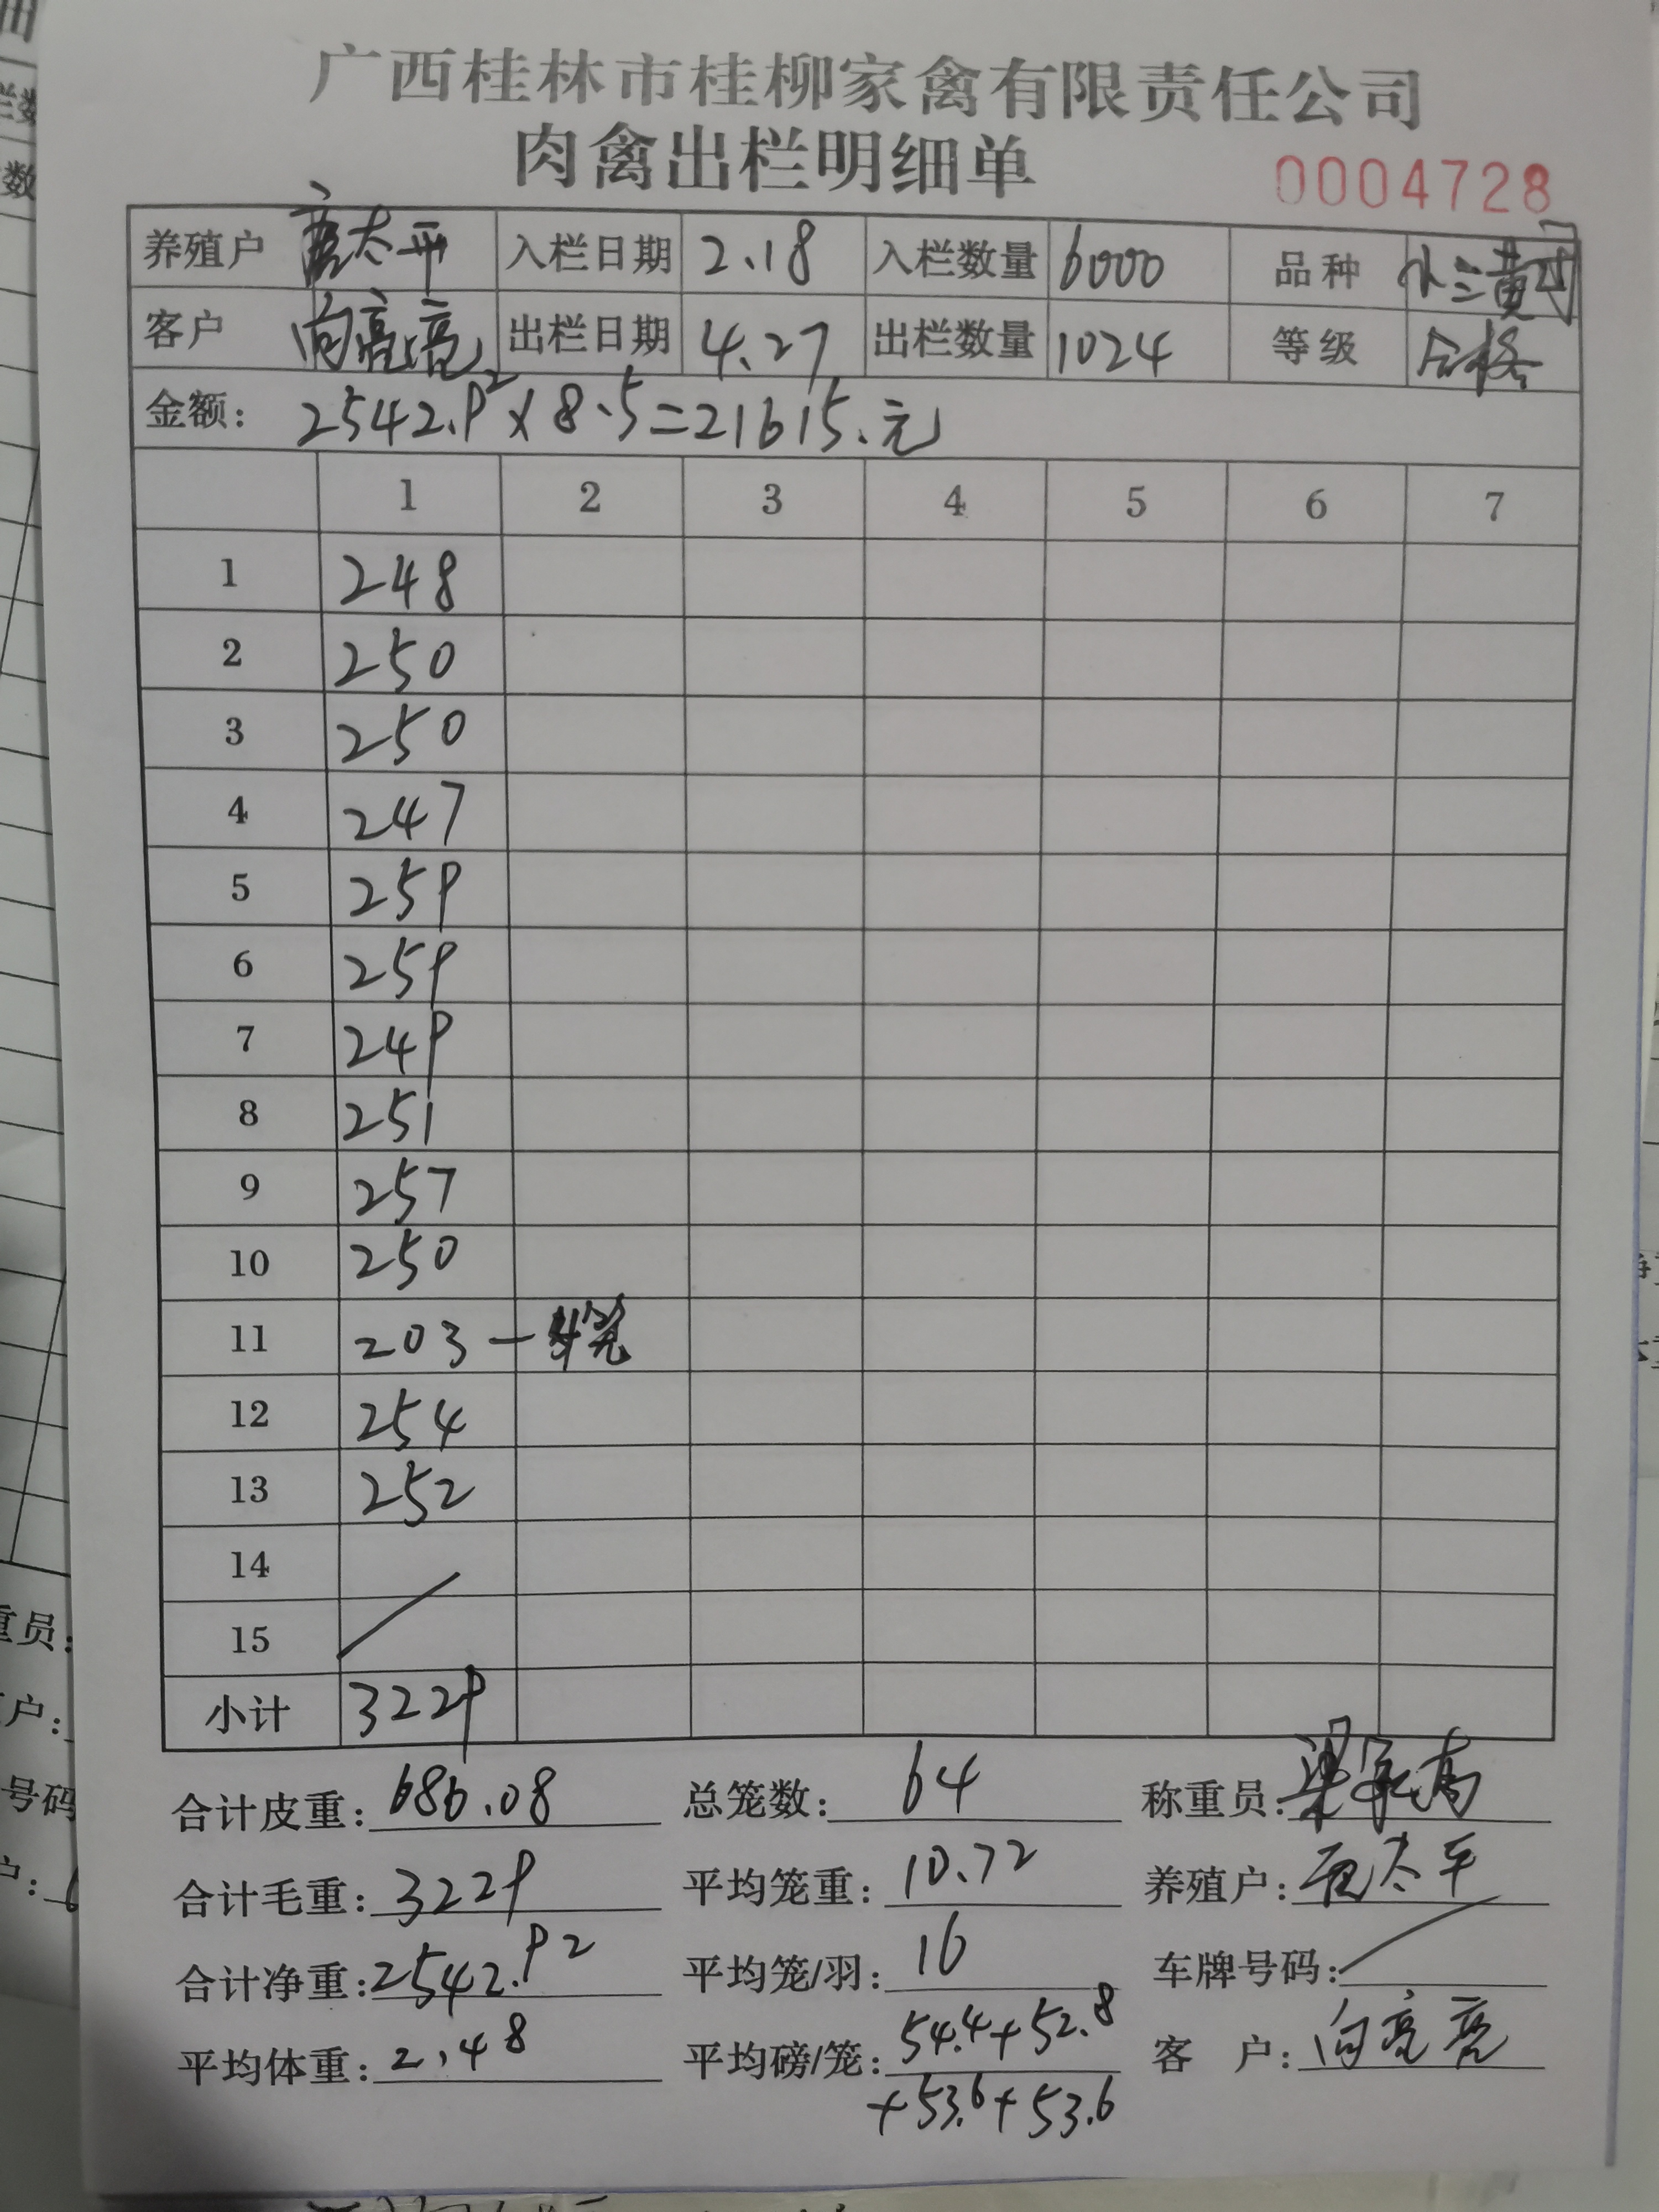 广西桂林市桂柳家禽有限责任公司
肉禽出栏明细单 0004728
养殖户 唐太平 入栏日期 2.18 入栏数量 6000 品种 小三黄
客户 向亮亮 出栏日期 4.27 出栏数量 1024 等级 合格
金额: 2542.92×8.5=21615.元
1 2 3 4 5 6 7
1 248
2 250
3 250
4 247
5 259
6 259
7 249
8 251
9 257
10 250
11 203 — 4笼
12 254
13 252
14
15
小计 3229
合计皮重: 686.08 总笼数: 64 称重员:
合计毛重: 3229 平均笼重: 10.72 养殖户: 唐太平
合计净重: 2542.92 平均笼/羽: 16 车牌号码:
平均体重: 2.48 平均磅/笼: 54.4+52.8 客 户: 向亮亮
+53.6+53.6